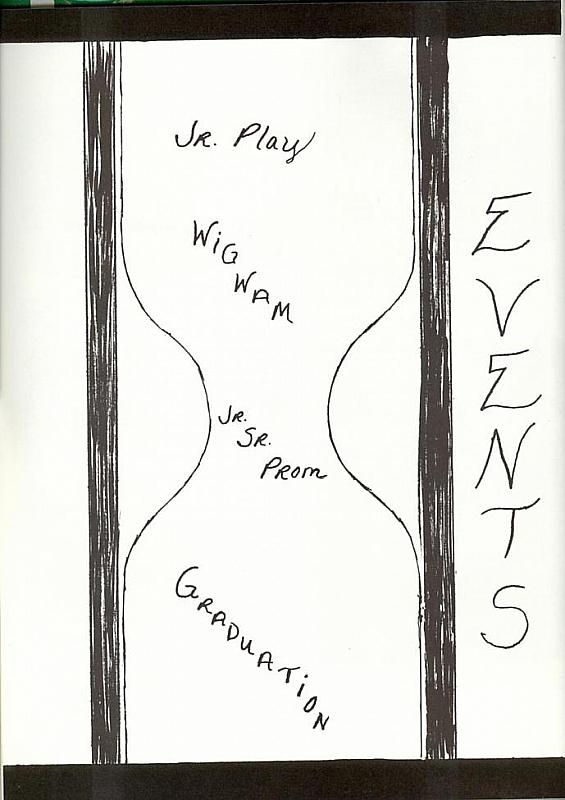 Jr. Play
WiG
WAM
Jr.
Sr.
Prom
GRADUATiON
EVENTS